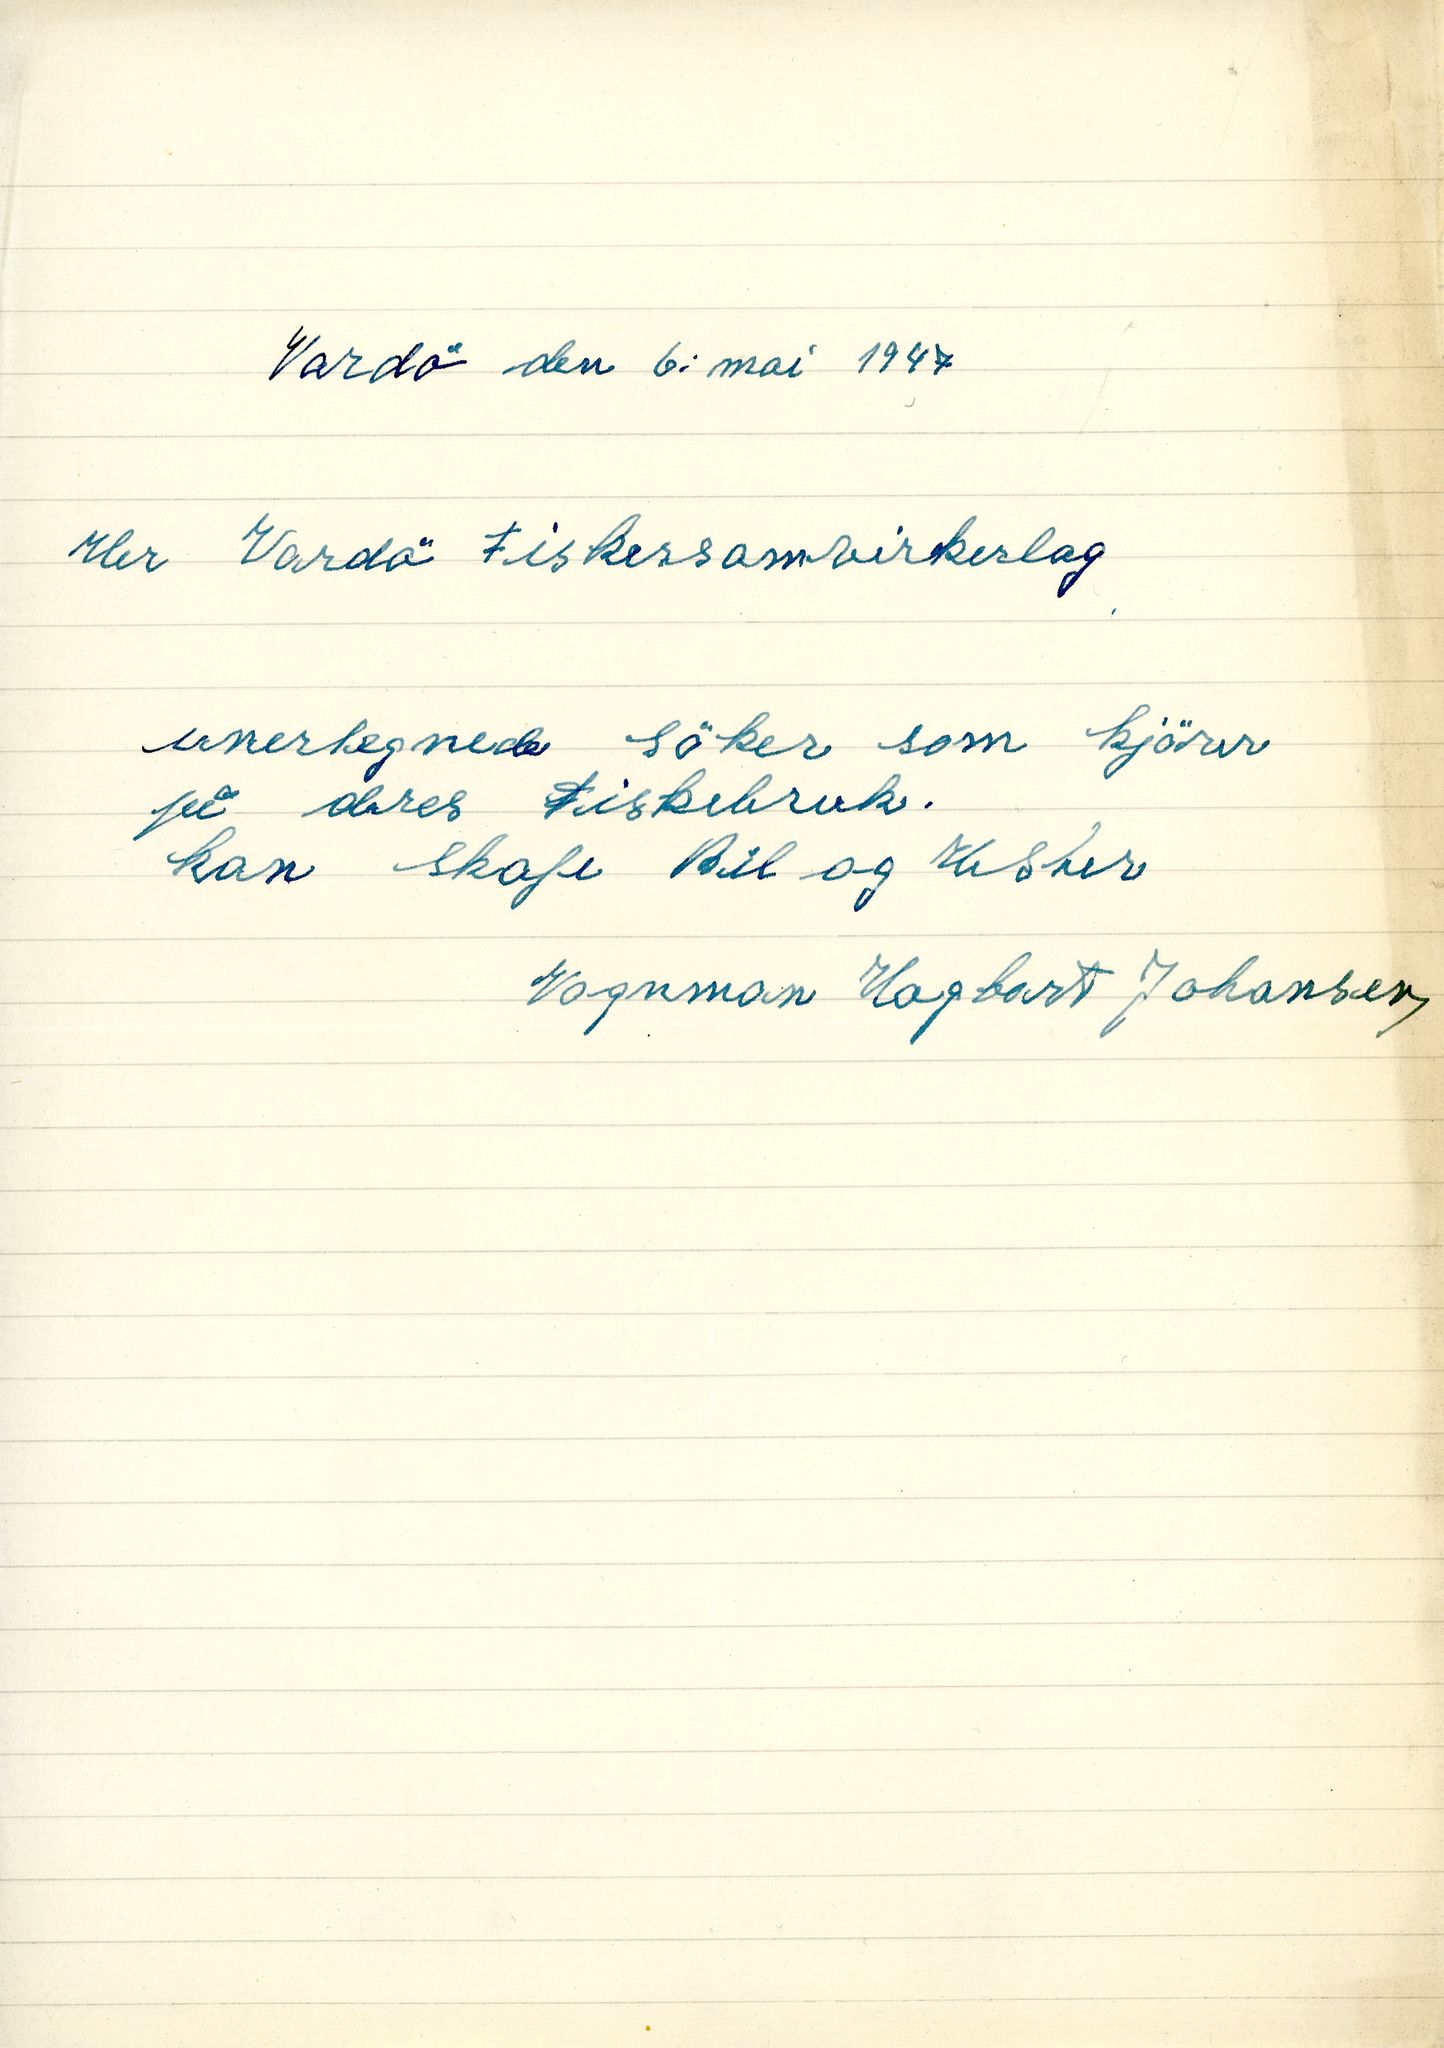 Vardö den 6: mai 1947
Her Vardö Fiskersamvirkerlag
unertegnede söker som kjörer
på deres Fiskebruk.
kan skafe Bil og Hester
Vognman Hagbart Johansen